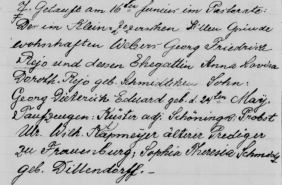 7. Getauft am 16ten Junius im Pastorate:
Der im Klein- Grunde
wohnhaften Webers Georg Friedrich
und dessen Ehegattin Anna Lovisa
Doroth. geb. Schmidtchen Sohn:
Georg Dieterich Eduard geb. d. 24ten May.
Taufzeugen: Küster adj. Schöning. Probst
Ur. Wilh. Kapmeyer älterer Prediger
zu Frauenburg; Sophia Theresia
geb. Dittendorff. –